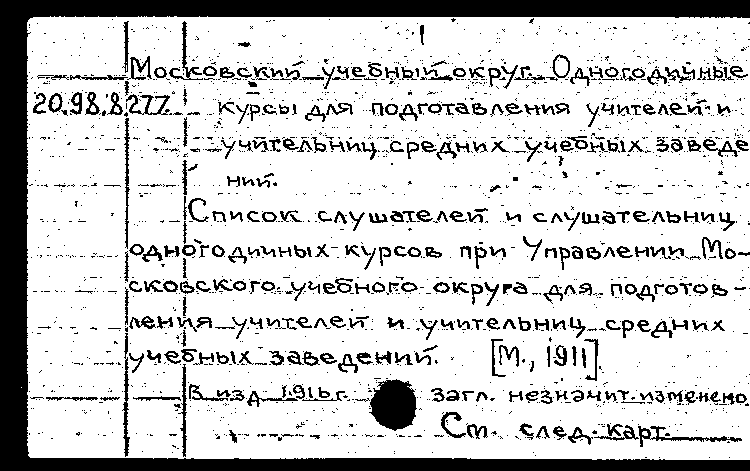 Московский учебный округ. Одногодичные
20.98.8277. курсы для подготавления учителей и
учительниц средних учебных заведе
ний.
Список слушателей и слушательниц
одногодичных курсов при Управлении Мо-
сковского учебного округа для подготов-
ления учителей и учительниц средних
учебных заведений. [М., 1911]
В изд. 1916г. загл. незначит. изменено
См. след. карт.